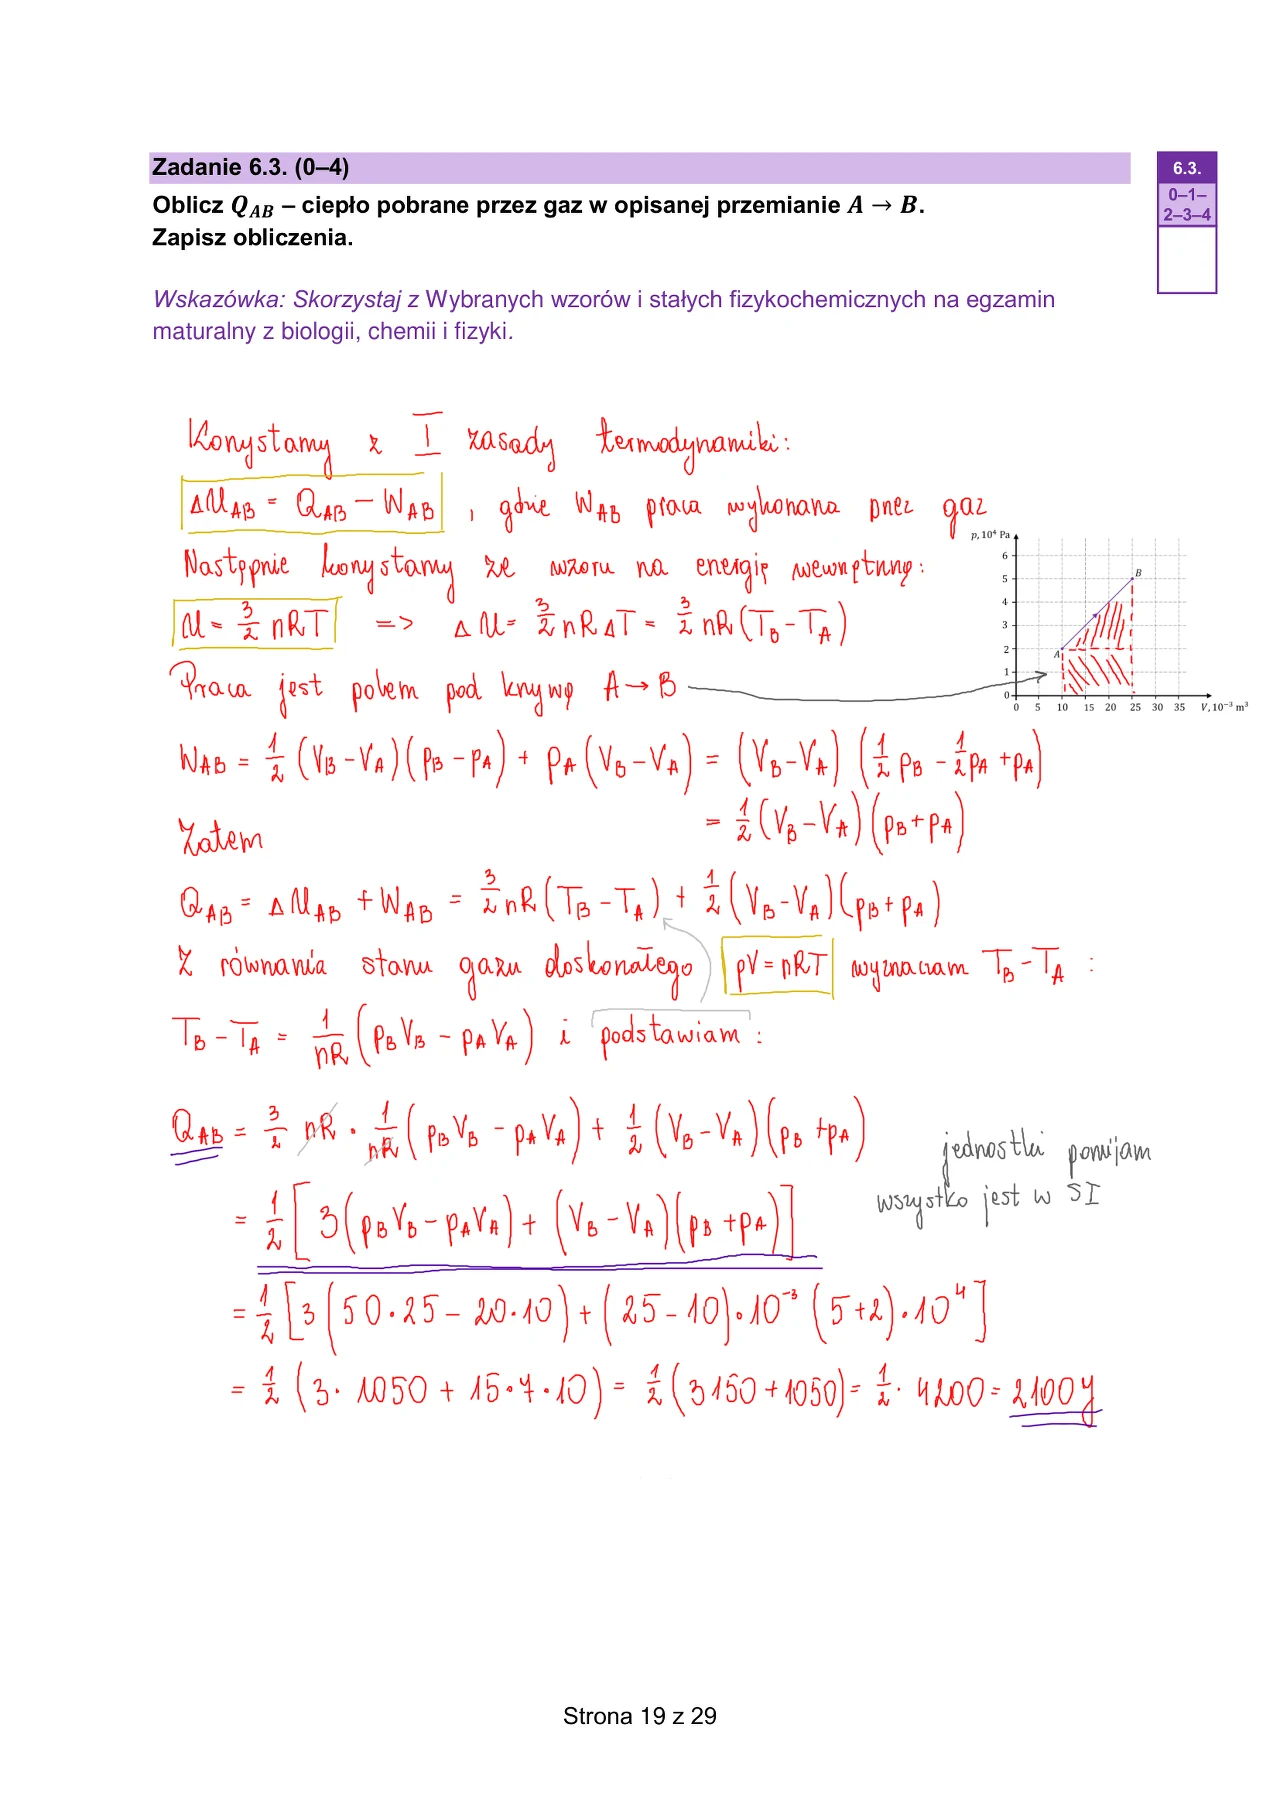 Zadanie 6.3. (0–4)
6.3.
0–1–
2–3–4
Oblicz Q_AB – ciepło pobrane przez gaz w opisanej przemianie A → B.
Zapisz obliczenia.
Wskazówka: Skorzystaj z Wybranych wzorów i stałych fizykochemicznych na egzamin
maturalny z biologii, chemii i fizyki.
Korzystamy z I zasady termodynamiki:
ΔU_AB = Q_AB − W_AB , gdzie W_AB praca wykonana przez gaz
Następnie korzystamy ze wzoru na energię wewnętrzną:
U = 3/2 nRT => ΔU = 3/2 nRΔT = 3/2 nR(T_B − T_A)
Praca jest polem pod krzywą A → B
p, 10⁴ Pa
6
5
4
3
2
1
0
A
B
0 5 10 15 20 25 30 35 V, 10⁻³ m³
W_AB = 1/2 (V_B − V_A)(p_B − p_A) + p_A(V_B − V_A) = (V_B − V_A)(1/2 p_B − 1/2 p_A + p_A)
= 1/2 (V_B − V_A)(p_B + p_A)
Zatem
Q_AB = ΔU_AB + W_AB = 3/2 nR(T_B − T_A) + 1/2 (V_B − V_A)(p_B + p_A)
Z równania stanu gazu doskonałego pV = nRT wyznaczam T_B − T_A :
T_B − T_A = 1/nR (p_B V_B − p_A V_A) i podstawiam :
Q_AB = 3/2 nR · 1/nR (p_B V_B − p_A V_A) + 1/2 (V_B − V_A)(p_B + p_A)
jednostki pomijam
wszystko jest w SI
= 1/2 [3(p_B V_B − p_A V_A) + (V_B − V_A)(p_B + p_A)]
= 1/2 [3(50·25 − 20·10) + (25 − 10)·10⁻³ (5+2)·10⁴]
= 1/2 (3·1050 + 15·7·10) = 1/2 (3150 + 1050) = 1/2 · 4200 = 2100 J
Strona 19 z 29